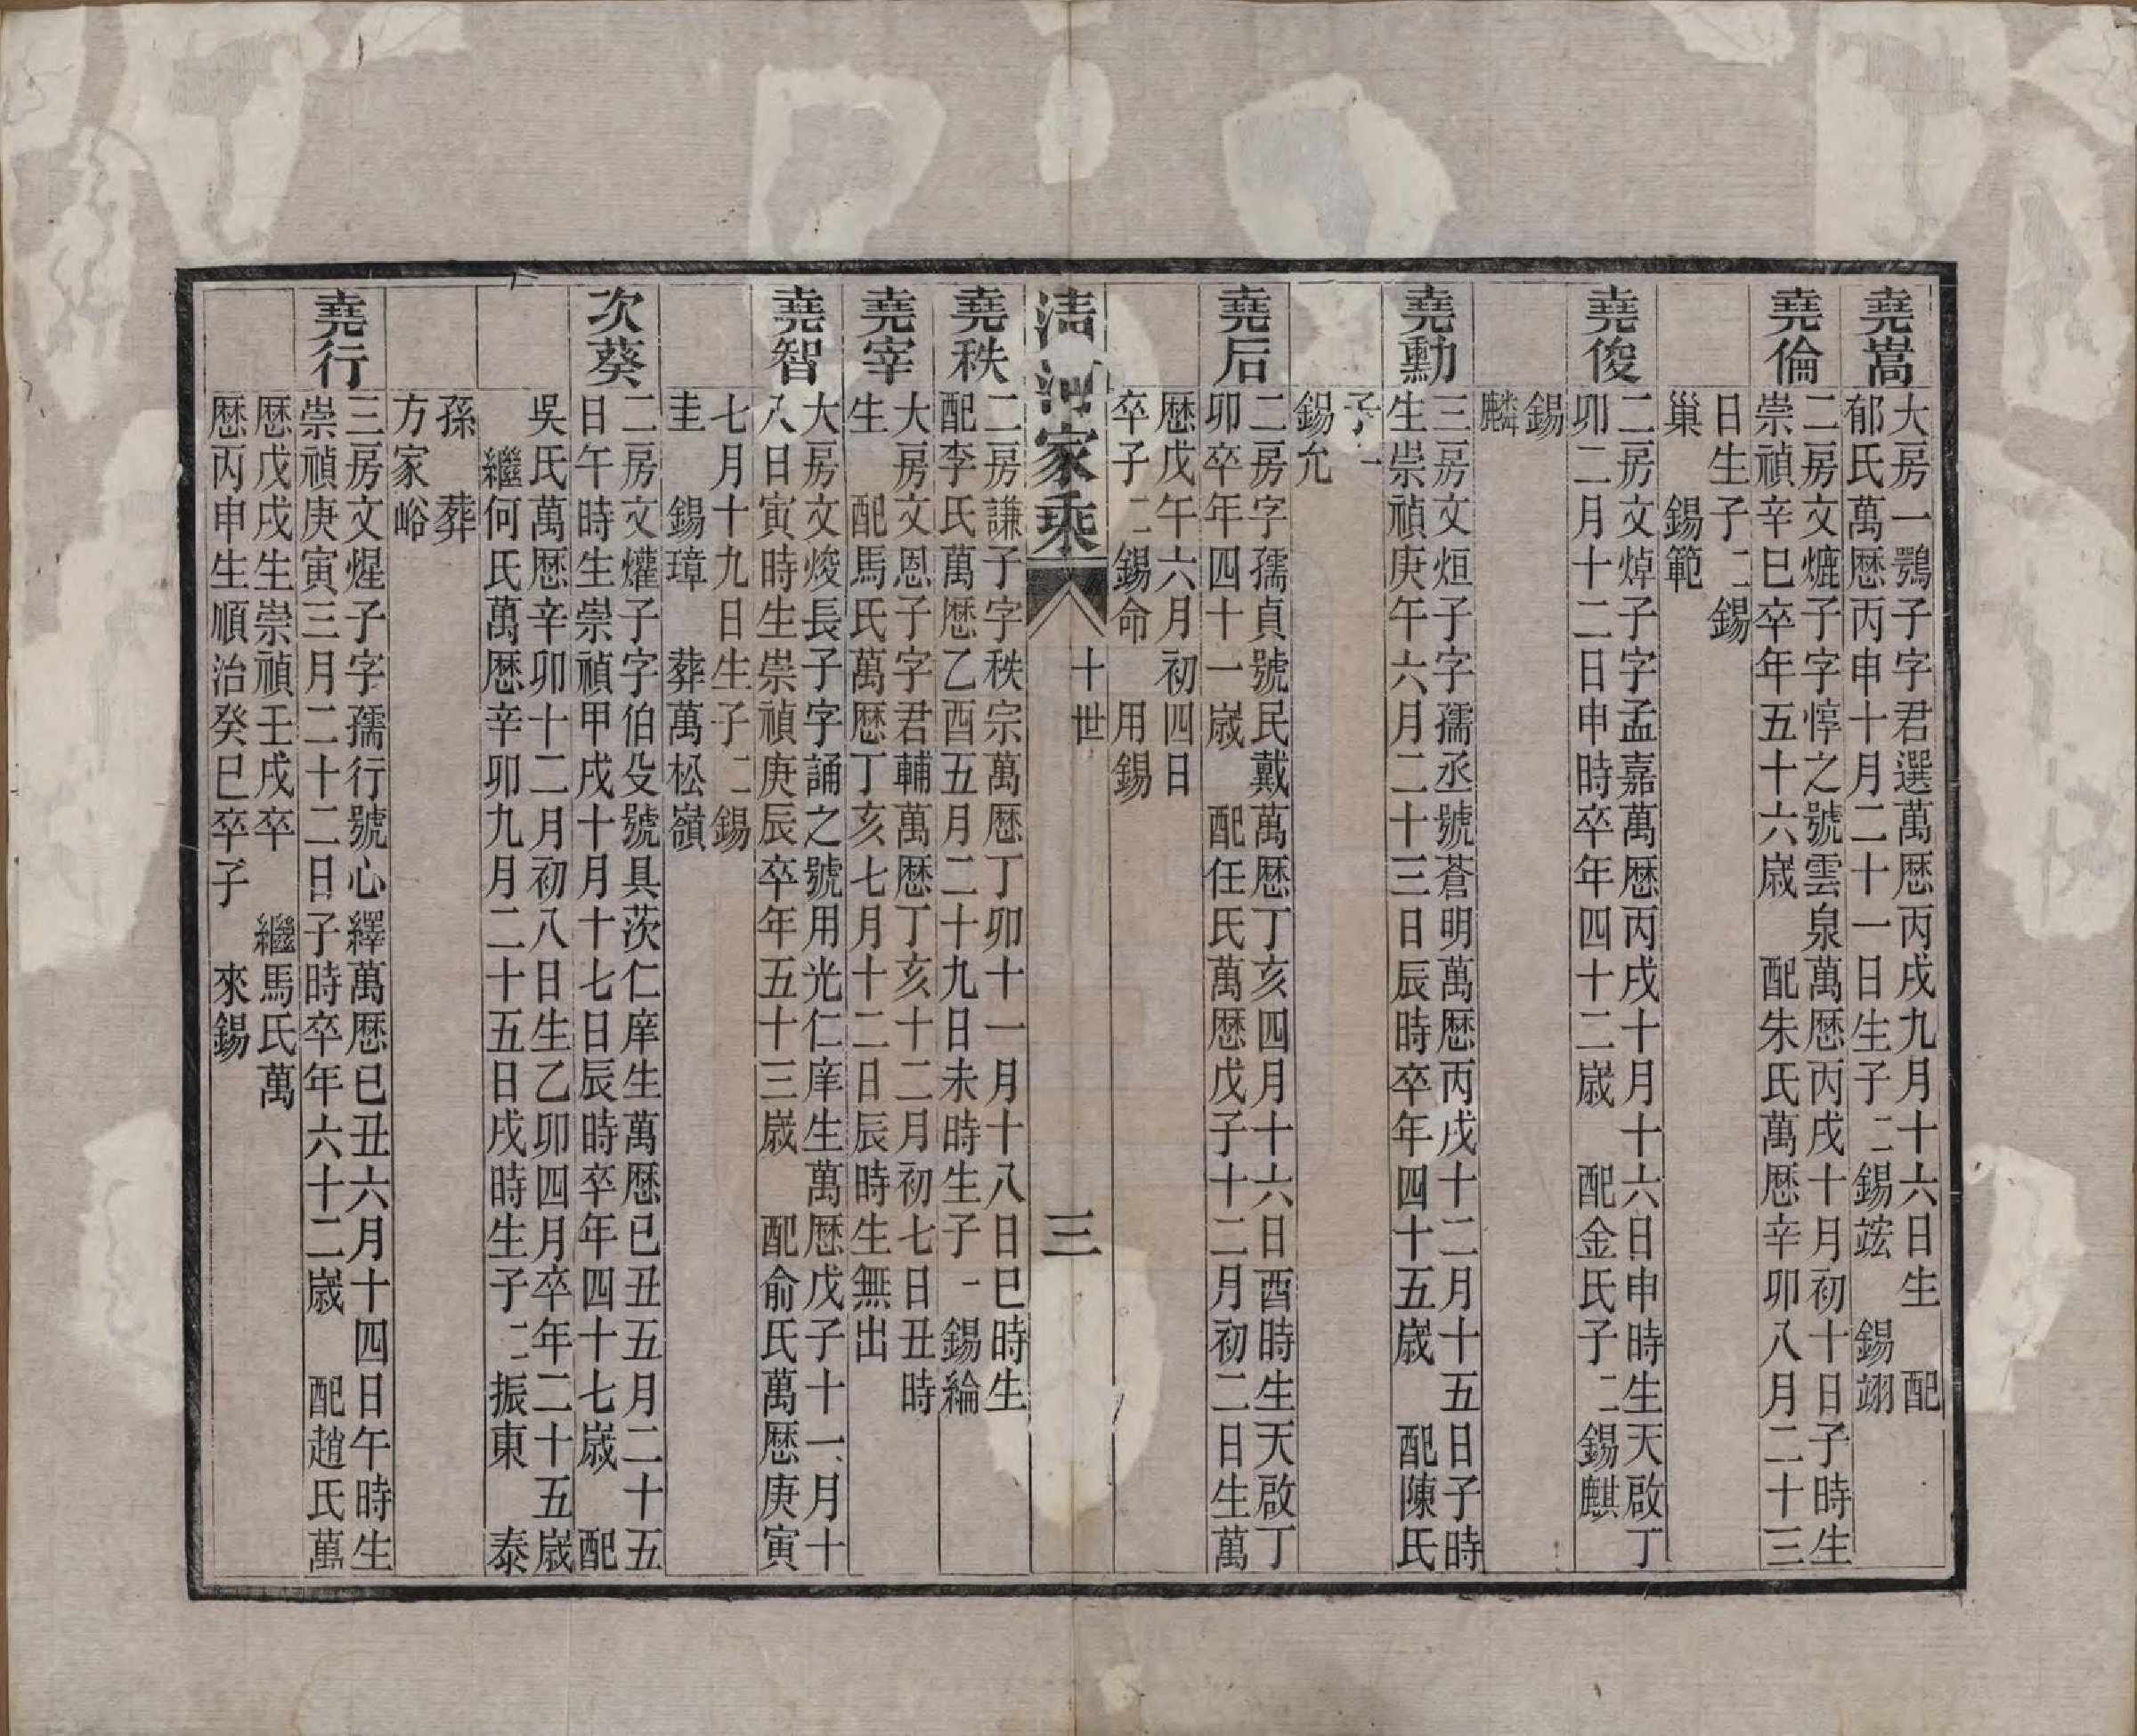 堯嵩
大房一鶚子字君選萬歷丙戌九月十六日生 配
郁氏萬歷丙申十月二十一日生子二錫竑 錫翊
堯倫
二房文熝子字惇之號雲泉萬歷丙戌十月初十日子時生
崇禎辛巳卒年五十六歲 配朱氏萬歷辛卯八月二十三
日生子二錫
巢 錫範
堯俊
二房文焯子字孟嘉萬歷丙戌十月十六日申時生天啟丁
卯二月十二日申時卒年四十二歲 配金氏子二錫麒
錫
麟
堯勳
三房文烜子字孺丞號蒼明萬歷丙戌十二月十五日子時
生崇禎庚午六月二十三日辰時卒年四十五歲 配陳氏
子一
錫允
堯后
二房字孺貞號民戴萬歷丁亥四月十六日酉時生天啟丁
卯卒年四十一歲 配任氏萬歷戊子十二月初二日生萬
歷戊午六月初四日
卒子二錫命 用錫
清河家乘 十世 三
堯秩
二房謙子字秩宗萬歷丁卯十一月十八日巳時生
配李氏萬歷乙酉五月二十九日未時生子一錫綸
堯宰
大房文恩子字君輔萬歷丁亥十二月初七日丑時
生 配馬氏萬歷丁亥七月十二日辰時生無出
堯智
大房文焌長子字誦之號用光仁庠生萬歷戊子十一月十
八日寅時生崇禎庚辰卒年五十三歲 配俞氏萬歷庚寅
七月十九日生子二錫
圭 錫璋 葬萬松嶺
次葵
二房文爟子字伯殳號具茨仁庠生萬歷已丑五月二十五
日午時生崇禎甲戌十月十七日辰時卒年四十七歲 配
吳氏萬歷辛卯十二月初八日生乙卯四月卒年二十五歲
繼何氏萬歷辛卯九月二十五日戌時生子二振東 泰
孫 葬
方家峪
堯行
三房文煋子字孺行號心繹萬歷已丑六月十四日午時生
崇禎庚寅三月二十二日子時卒年六十二歲 配趙氏萬
歷戊戌生崇禎壬戌卒 繼馬氏萬
歷丙申生順治癸巳卒子 來錫